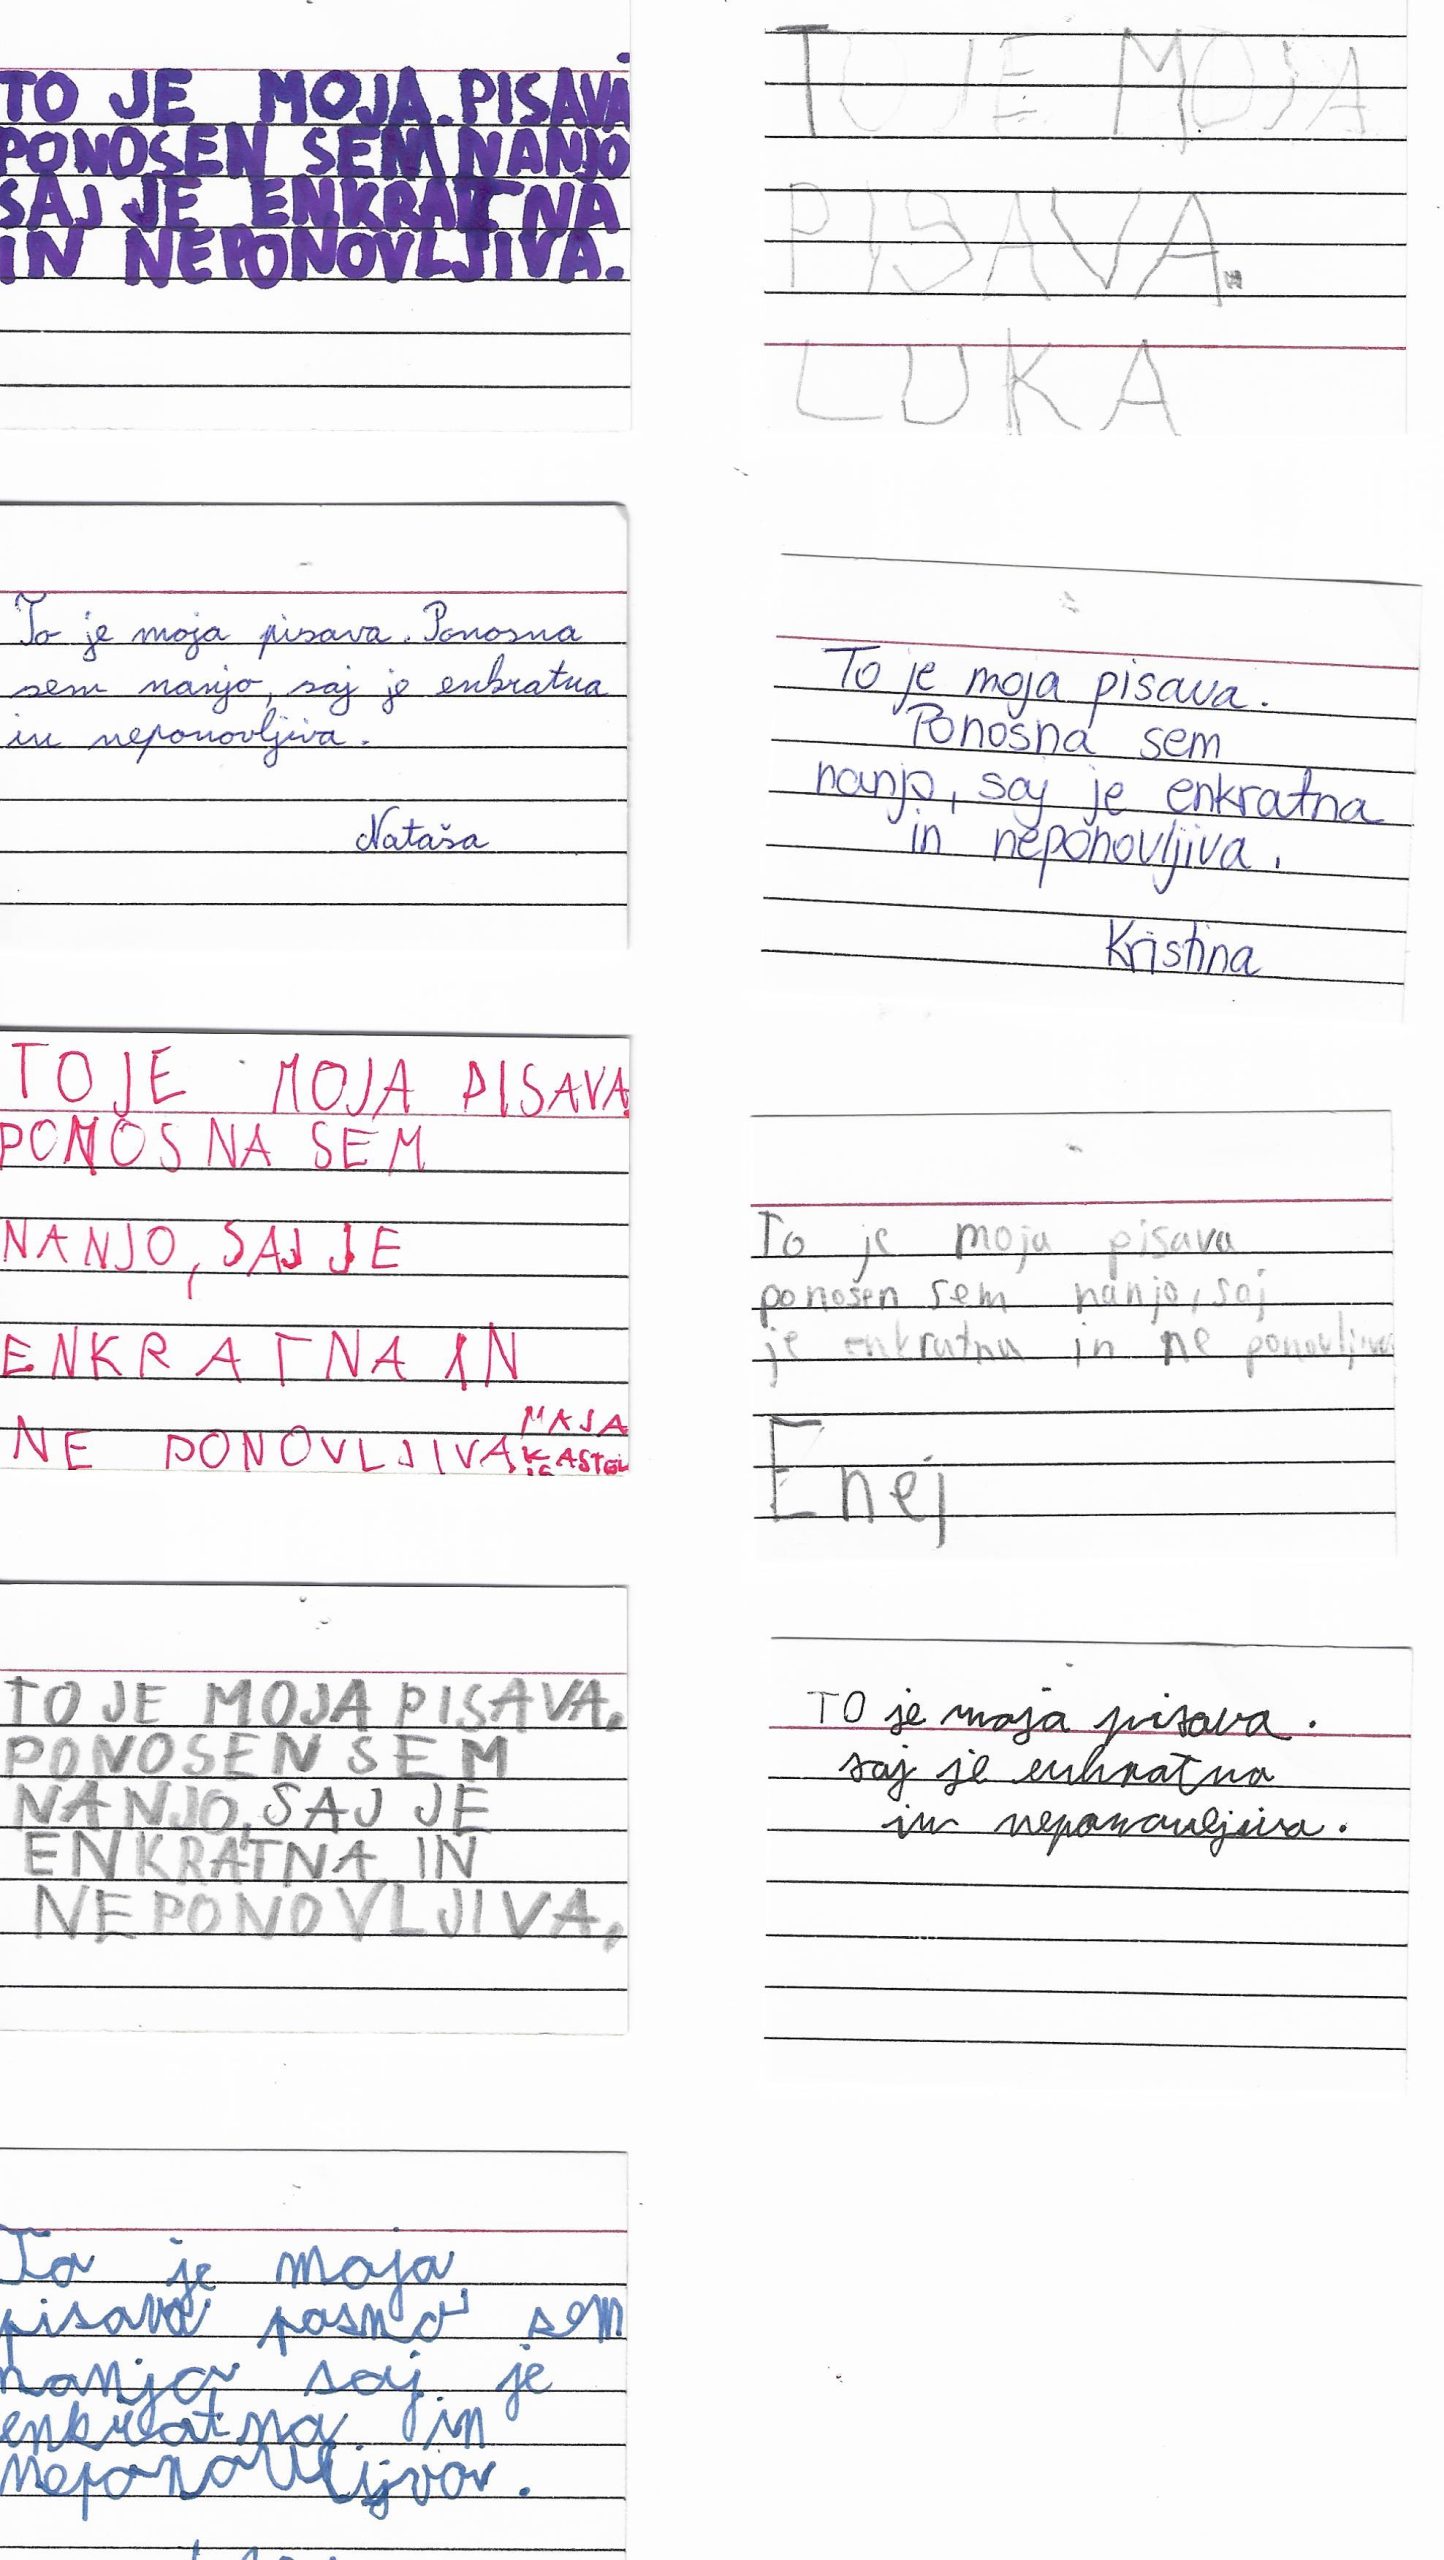 TO JE MOJA PISAVA
PONOSEN SEM NANJO
SAJ JE ENKRATNA
IN NEPONOVLJIVA.
TO JE MOJA
PISAVA.
LUKA
To je moja pisava. Ponosna
sem nanjo, saj je enkratna
in neponovljiva.
Nataša
To je moja pisava.
Ponosna sem
nanjo, saj je enkratna
in neponovljiva.
Kristina
TO JE MOJA PISAVA
PONOSNA SEM
NANJO, SAJ JE
ENKRATNA IN
NE PONOVLJIVA
MAJA
To je moja pisava
ponosen sem nanjo, saj
je enkratna in ne ponovljiva
Enej
TO JE MOJA PISAVA.
PONOSEN SEM
NANJO, SAJ JE
ENKRATNA IN
NEPONOVLJIVA.
TO je moja pisava.
saj je enkratna
in neponovljiva.
To je moja
pisava posno sem
nanjo saj je
enkratna in